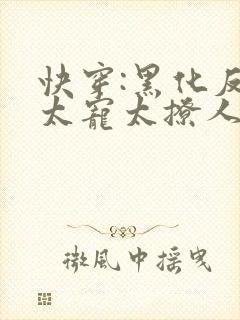 快穿:黑化反
太宠太撩人
微风中摇曳